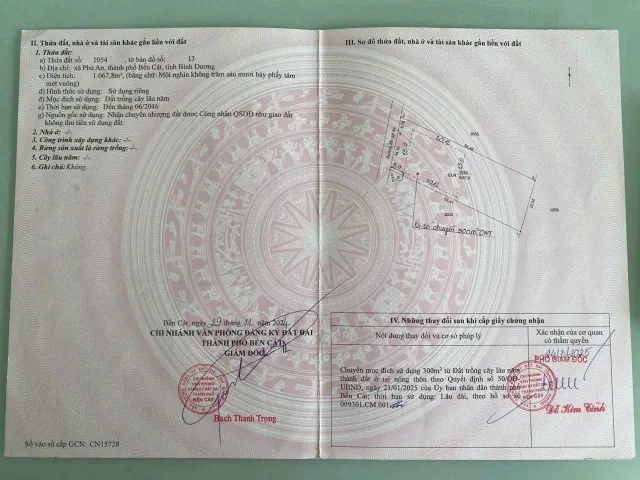 II. Thửa đất, nhà ở và tài sản khác gắn liền với đất
1. Thửa đất:
a) Thửa đất số: 1054 , tờ bản đồ số: 13
b) Địa chỉ: xã Phú An, thành phố Bến Cát, tỉnh Bình Dương
c) Diện tích: 1.067,8m², (bằng chữ: Một nghìn không trăm sáu mươi bảy phẩy tám
mét vuông)
d) Hình thức sử dụng: Sử dụng riêng
đ) Mục đích sử dụng: Đất trồng cây lâu năm
e) Thời hạn sử dụng: Đến tháng 06/2046
g) Nguồn gốc sử dụng: Nhận chuyển nhượng đất được Công nhận QSDĐ như giao đất
không thu tiền sử dụng đất
2. Nhà ở: -/-
3. Công trình xây dựng khác: -/-
4. Rừng sản xuất là rừng trồng: -/-
5. Cây lâu năm: -/-
6. Ghi chú: Không.
Bến Cát, ngày 29 tháng 11 năm 2024
CHI NHÁNH VĂN PHÒNG ĐĂNG KÝ ĐẤT ĐAI
THÀNH PHỐ BẾN CÁT
GIÁM ĐỐC
CHI NHÁNH
VĂN PHÒNG
ĐĂNG KÝ ĐẤT ĐAI
BẾN CÁT
Bạch Thanh Trọng
Số vào sổ cấp GCN: CN15728
III. Sơ đồ thửa đất, nhà ở và tài sản khác gắn liền với đất
1055
CLN
1054
1067.8
1056
Vị trí chuyển 300m² ONT
IV. Những thay đổi sau khi cấp giấy chứng nhận
Nội dung thay đổi và cơ sở pháp lý
Xác nhận của cơ quan
có thẩm quyền
Chuyển mục đích sử dụng 300m² từ Đất trồng cây lâu năm
thành đất ở tại nông thôn theo Quyết định số 50/QĐ-
UBND, ngày 21/01/2025 của Ủy ban nhân dân thành phố
Bến Cát; thời hạn sử dụng: Lâu dài, theo hồ sơ số
009301.CM.001
PHÓ GIÁM ĐỐC
CHI NHÁNH
VĂN PHÒNG
ĐĂNG KÝ ĐẤT ĐAI
BẾN CÁT
Đỗ Kim Tính